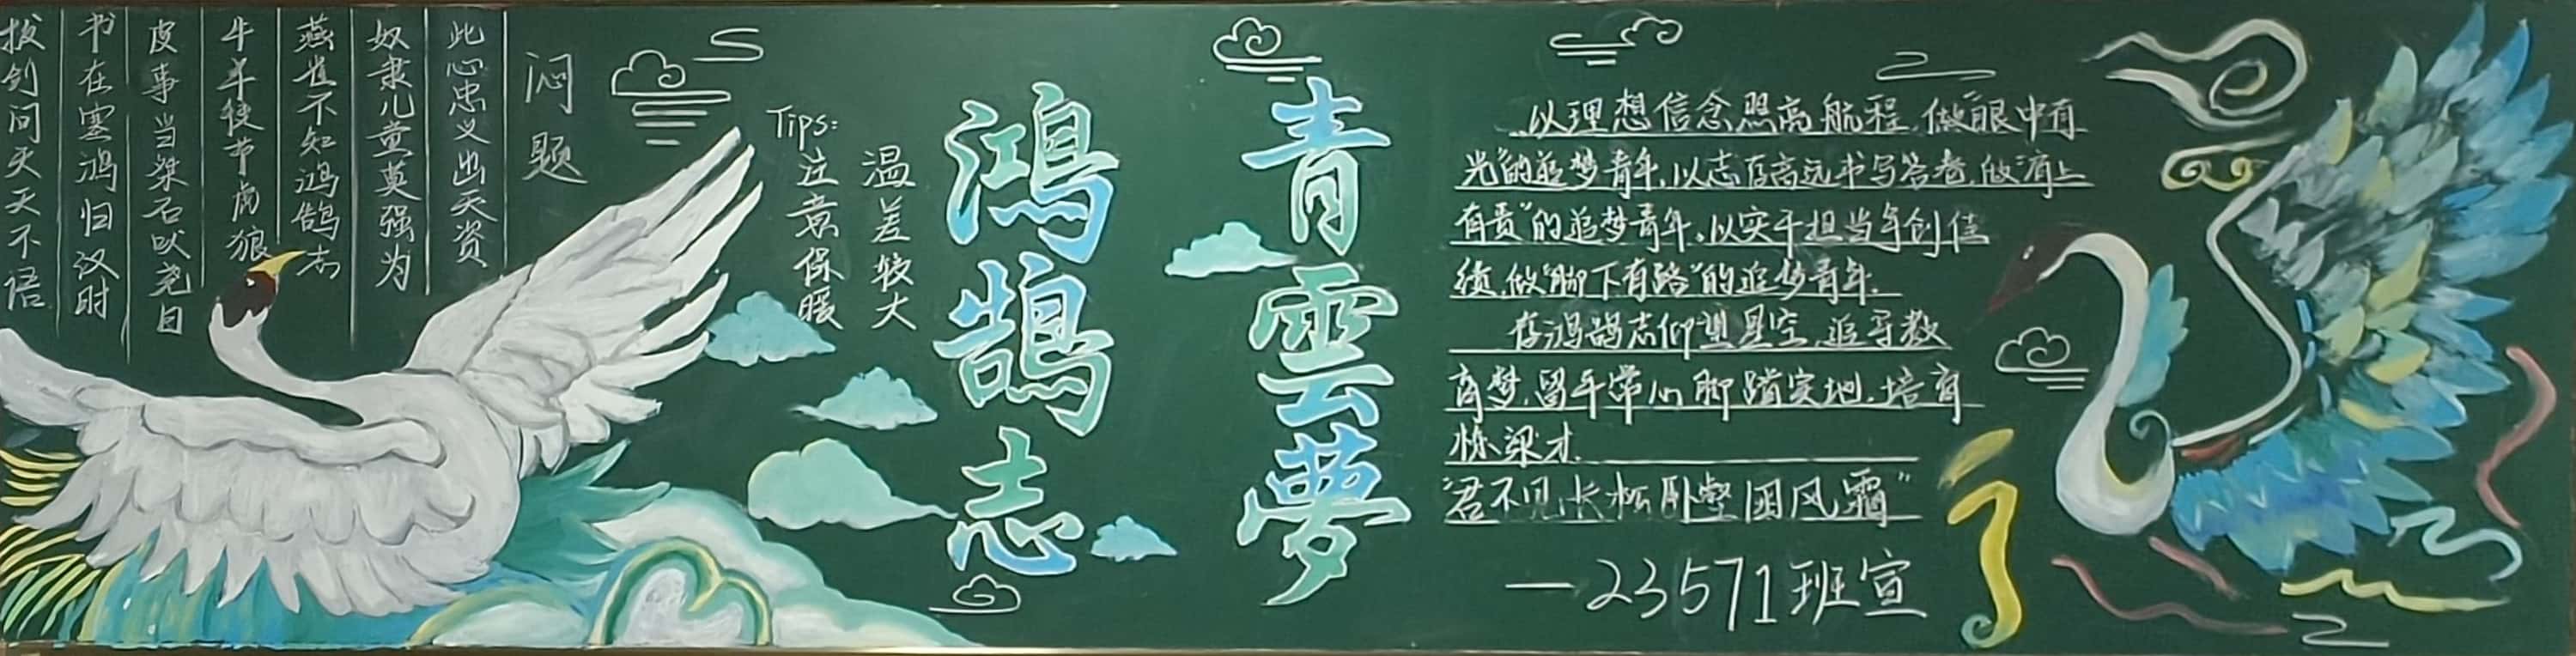 闷题
此心忠义出天资
奴隶儿童莫强为
燕雀不知鸿鹄志
牛羊徒节虏狼
皮事当桀石吠尧目
书在塞鸿归汉时
拔剑问天天不语
Tips:
温差较大
注意保暖
青雲夢
鴻鵠志
以理想信念照高航程,做“眼中有
光”的追梦青年,以志存高远书写答卷,做“肩上
有责”的追梦青年,以实干担当争创佳
绩,做“脚下有路”的追梦青年.
存鸿鹄志仰望星空,追寻教
育梦,留平常心脚踏实地,培育
栋梁才.
“君不见,长松卧壑困风霜”
—23571班宣